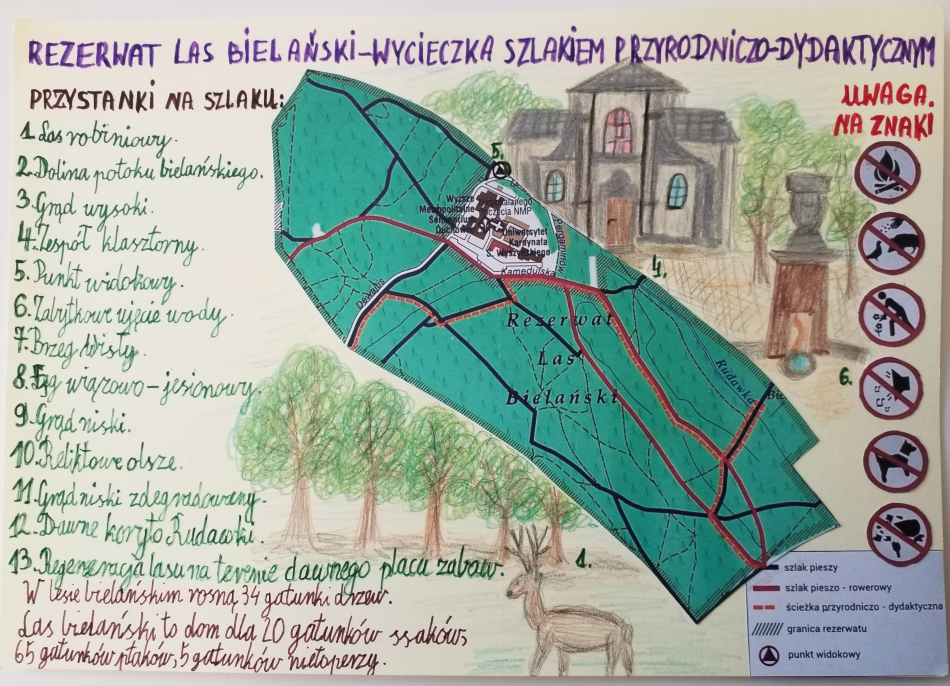 REZERWAT LAS BIELAŃSKI-WYCIECZKA SZLAKIEM PRZYRODNICZO-DYDAKTYCZNYM
PRZYSTANKI NA SZLAKU:
1. Las robiniowy.
2. Dolina potoku bielańskiego.
3. Grąd wysoki.
4. Zespół klasztorny.
5. Punkt widokowy.
6. Zabytkowe ujęcie wody.
7. Brzeg Wisły.
8. Łęg wiązowo-jesionowy.
9. Grąd niski.
10. Reliktowe olsze.
11. Grąd niski zdegradowany.
12. Dawne koryto Rudawki.
13. Regeneracja lasu na terenie dawnego placu zabaw.
W lesie bielańskim rosną 34 gatunki drzew.
Las bielański to dom dla 20 gatunków ssaków,
65 gatunków ptaków, 5 gatunków nietoperzy.
UWAGA.
NA ZNAKI
5.
Wyższe
Metropolitalne
Seminarium
Duchowne
NMP
Uniwersytet
Kardynała
S. Wyszyńskiego
Kamedulska
Dewajtis
Rezerwat
Las
Bielański
Rudawka
Bie
4.
6.
1.
szlak pieszy
szlak pieszo - rowerowy
ścieżka przyrodniczo - dydaktyczna
granica rezerwatu
punkt widokowy